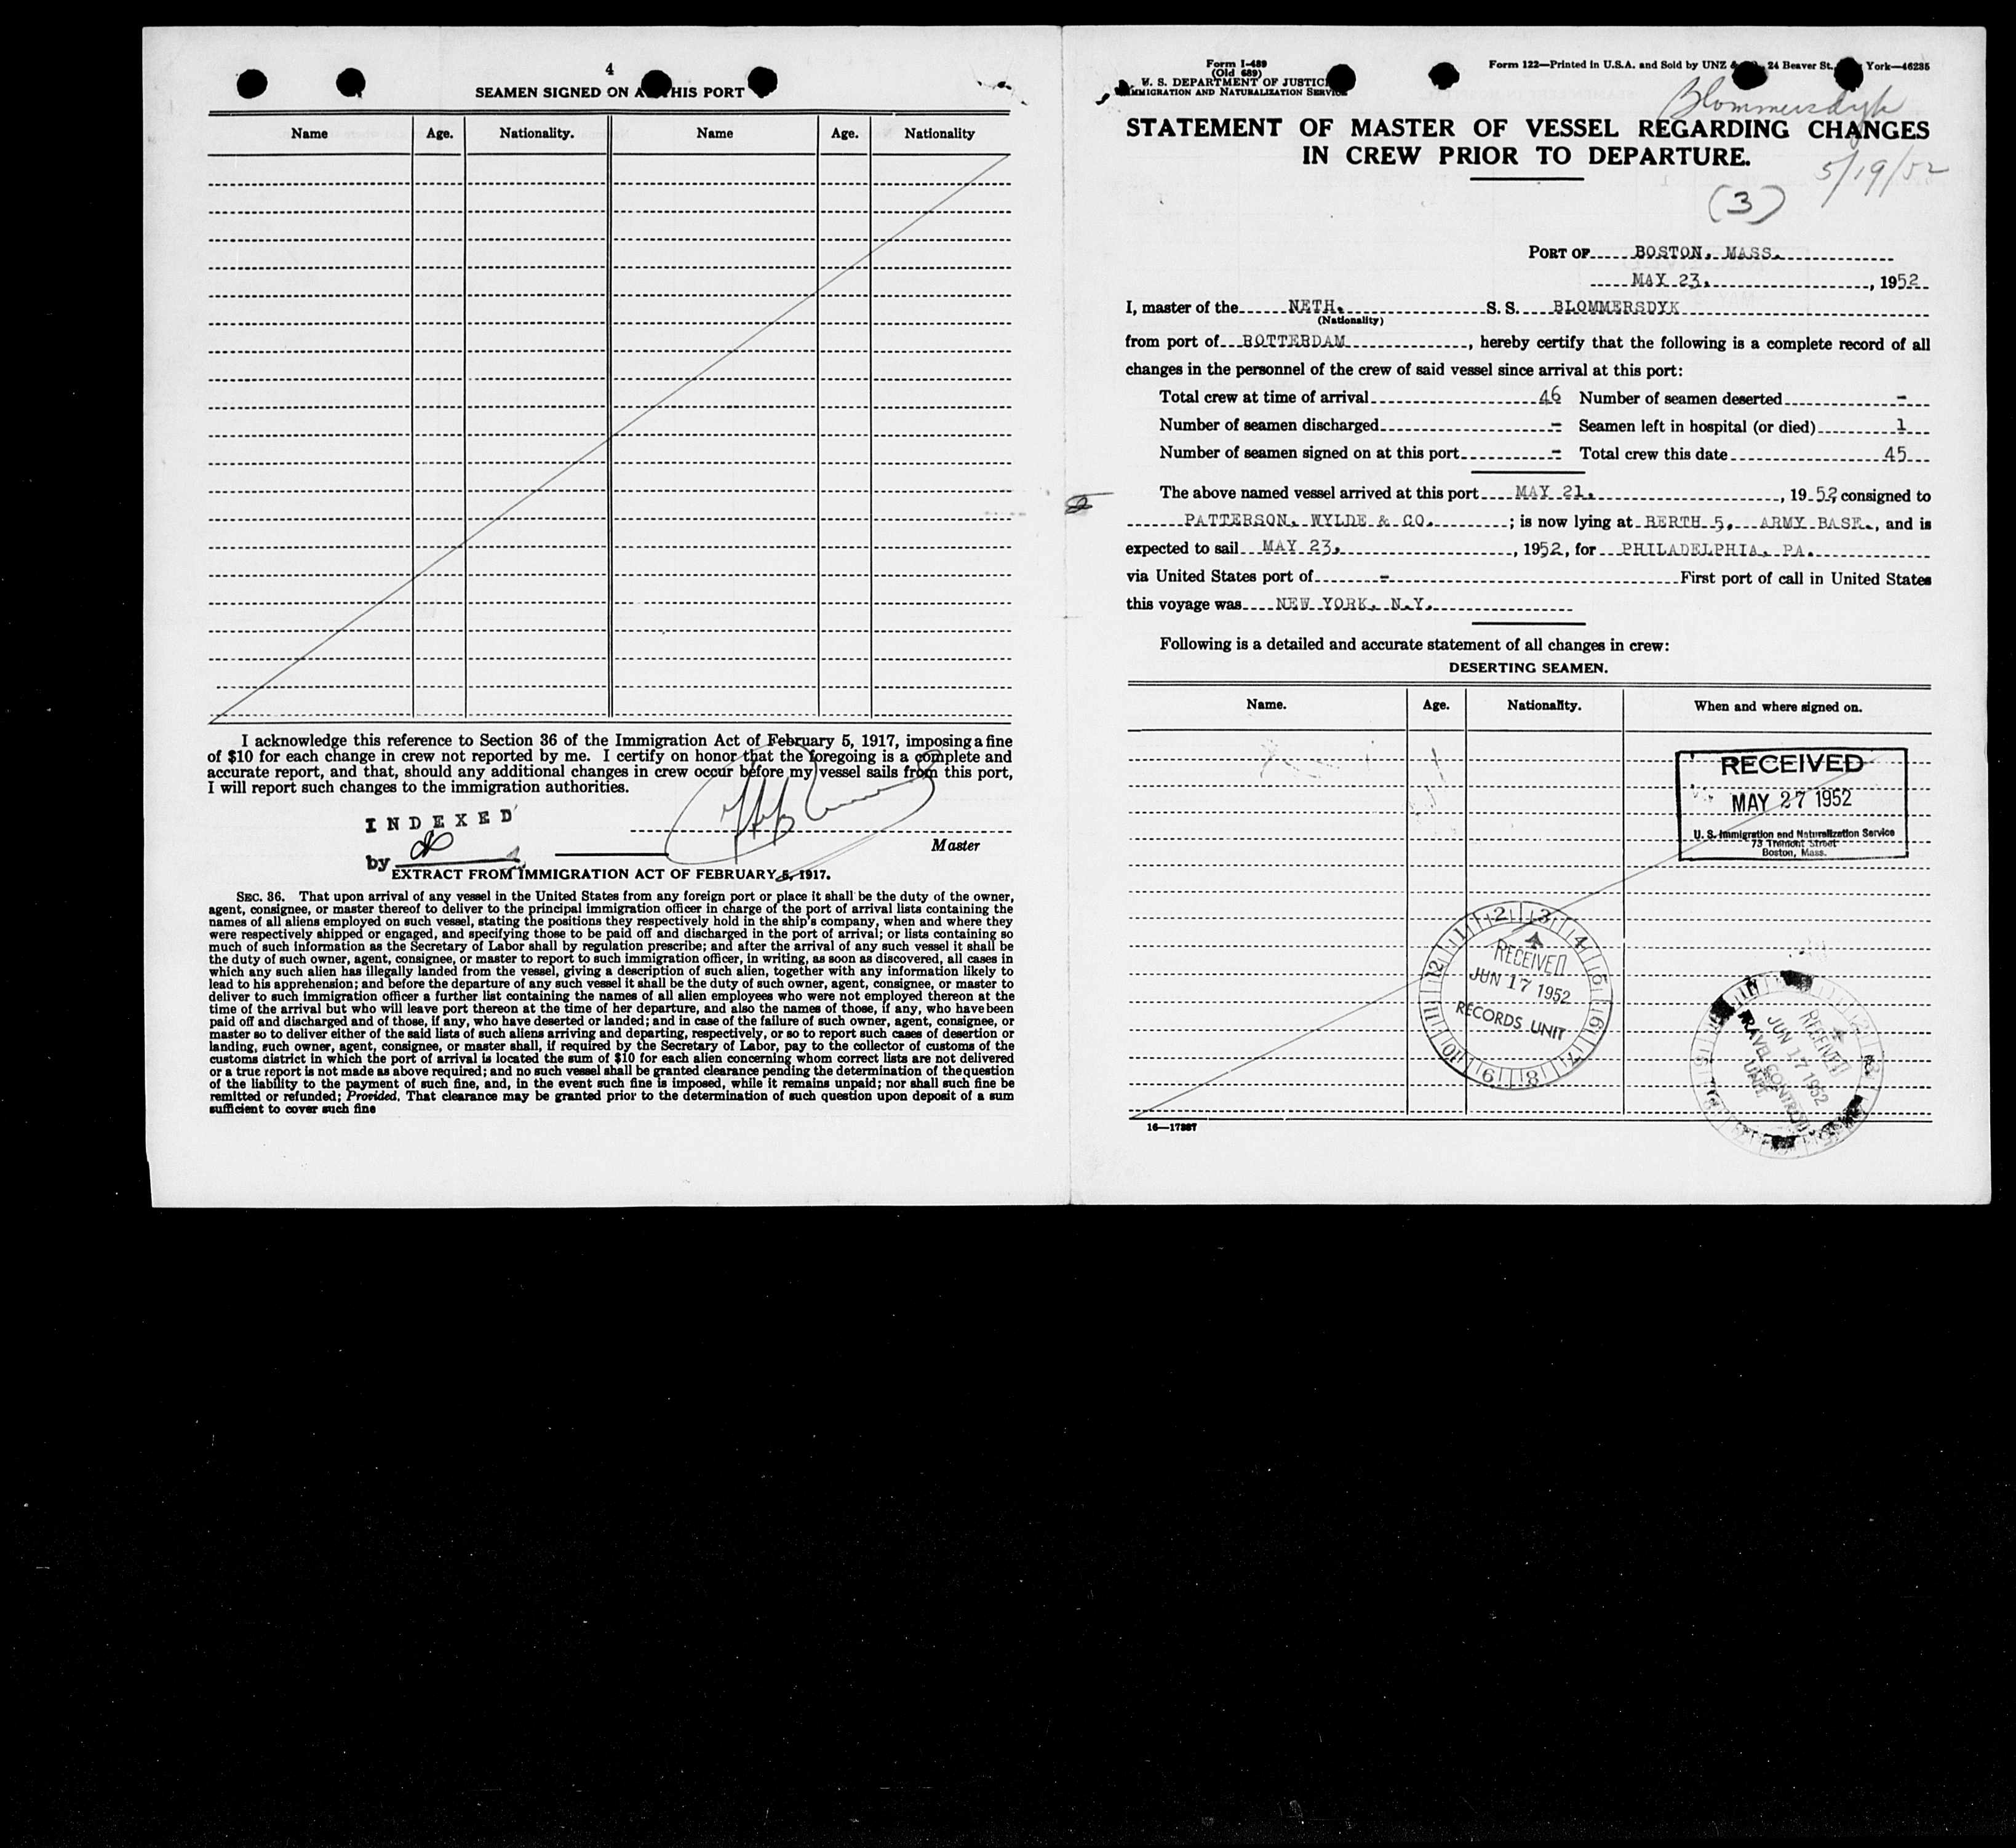 4
SEAMEN SIGNED ON A HIS PORT
Name Age. Nationality. Name Age. Nationality
I acknowledge this reference to Section 36 of the Immigration Act of February 5, 1917, imposing a fine
of $10 for each change in crew not reported by me. I certify on honor that the foregoing is a complete and
accurate report, and that, should any additional changes in crew occur before my vessel sails from this port,
I will report such changes to the immigration authorities.
INDEXED
by
Master
EXTRACT FROM IMMIGRATION ACT OF FEBRUARY 5, 1917.
SEC. 36. That upon arrival of any vessel in the United States from any foreign port or place it shall be the duty of the owner,
agent, consignee, or master thereof to deliver to the principal immigration officer in charge of the port of arrival lists containing the
names of all aliens employed on such vessel, stating the positions they respectively hold in the ship's company, when and where they
were respectively shipped or engaged, and specifying those to be paid off and discharged in the port of arrival; or lists containing so
much of such information as the Secretary of Labor shall by regulation prescribe; and after the arrival of any such vessel it shall be
the duty of such owner, agent, consignee, or master to report to such immigration officer, in writing, as soon as discovered, all cases in
which any such alien has illegally landed from the vessel, giving a description of such alien, together with any information likely to
lead to his apprehension; and before the departure of any such vessel it shall be the duty of such owner, agent, consignee, or master to
deliver to such immigration officer a further list containing the names of all alien employees who were not employed thereon at the
time of the arrival but who will leave port thereon at the time of her departure, and also the names of those, if any, who have been
paid off and discharged and of those, if any, who have deserted or landed; and in case of the failure of such owner, agent, consignee, or
master so to deliver either of the said lists of such aliens arriving and departing, respectively, or so to report such cases of desertion or
landing, such owner, agent, consignee, or master shall, if required by the Secretary of Labor, pay to the collector of customs of the
customs district in which the port of arrival is located the sum of $10 for each alien concerning whom correct lists are not delivered
or a true report is not made as above required; and no such vessel shall be granted clearance pending the determination of the question
of the liability to the payment of such fine, and, in the event such fine is imposed, while it remains unpaid; nor shall such fine be
remitted or refunded; Provided, That clearance may be granted prior to the determination of such question upon deposit of a sum
sufficient to cover such fine
Form I-489
(Old 689)
U. S. DEPARTMENT OF JUSTICE
IMMIGRATION AND NATURALIZATION SERVICE
Form 122—Printed in U.S.A. and Sold by UNZ & 24 Beaver St. York—46235
Blommersdyk
STATEMENT OF MASTER OF VESSEL REGARDING CHANGES
IN CREW PRIOR TO DEPARTURE.
5/19/52
(3)
PORT OF BOSTON, MASS.
MAY 23, 1952
I, master of the NETH. S. S. BLOMMERSDYK
(Nationality)
from port of ROTTERDAM, hereby certify that the following is a complete record of all
changes in the personnel of the crew of said vessel since arrival at this port:
Total crew at time of arrival 46 Number of seamen deserted -
Number of seamen discharged - Seamen left in hospital (or died) 1
Number of seamen signed on at this port - Total crew this date 45
The above named vessel arrived at this port MAY 21, 1952, consigned to
PATTERSON, WYLDE & CO.; is now lying at BERTH 5, ARMY BASE., and is
expected to sail MAY 23, 1952, for PHILADELPHIA, PA.
via United States port of - First port of call in United States
this voyage was NEW YORK, N.Y.
Following is a detailed and accurate statement of all changes in crew:
DESERTING SEAMEN.
Name. Age. Nationality. When and where signed on.
RECEIVED
MAY 27 1952
U. S. Immigration and Naturalization Service
73 Tremont Street
Boston, Mass.
1 2 3 4 5 6 7 8 9 10 11 12
RECEIVED
JUN 17 1952
RECORDS UNIT
RECEIVED
JUN 17 1952
TRAVEL CONTROL
UNIT
16—17387